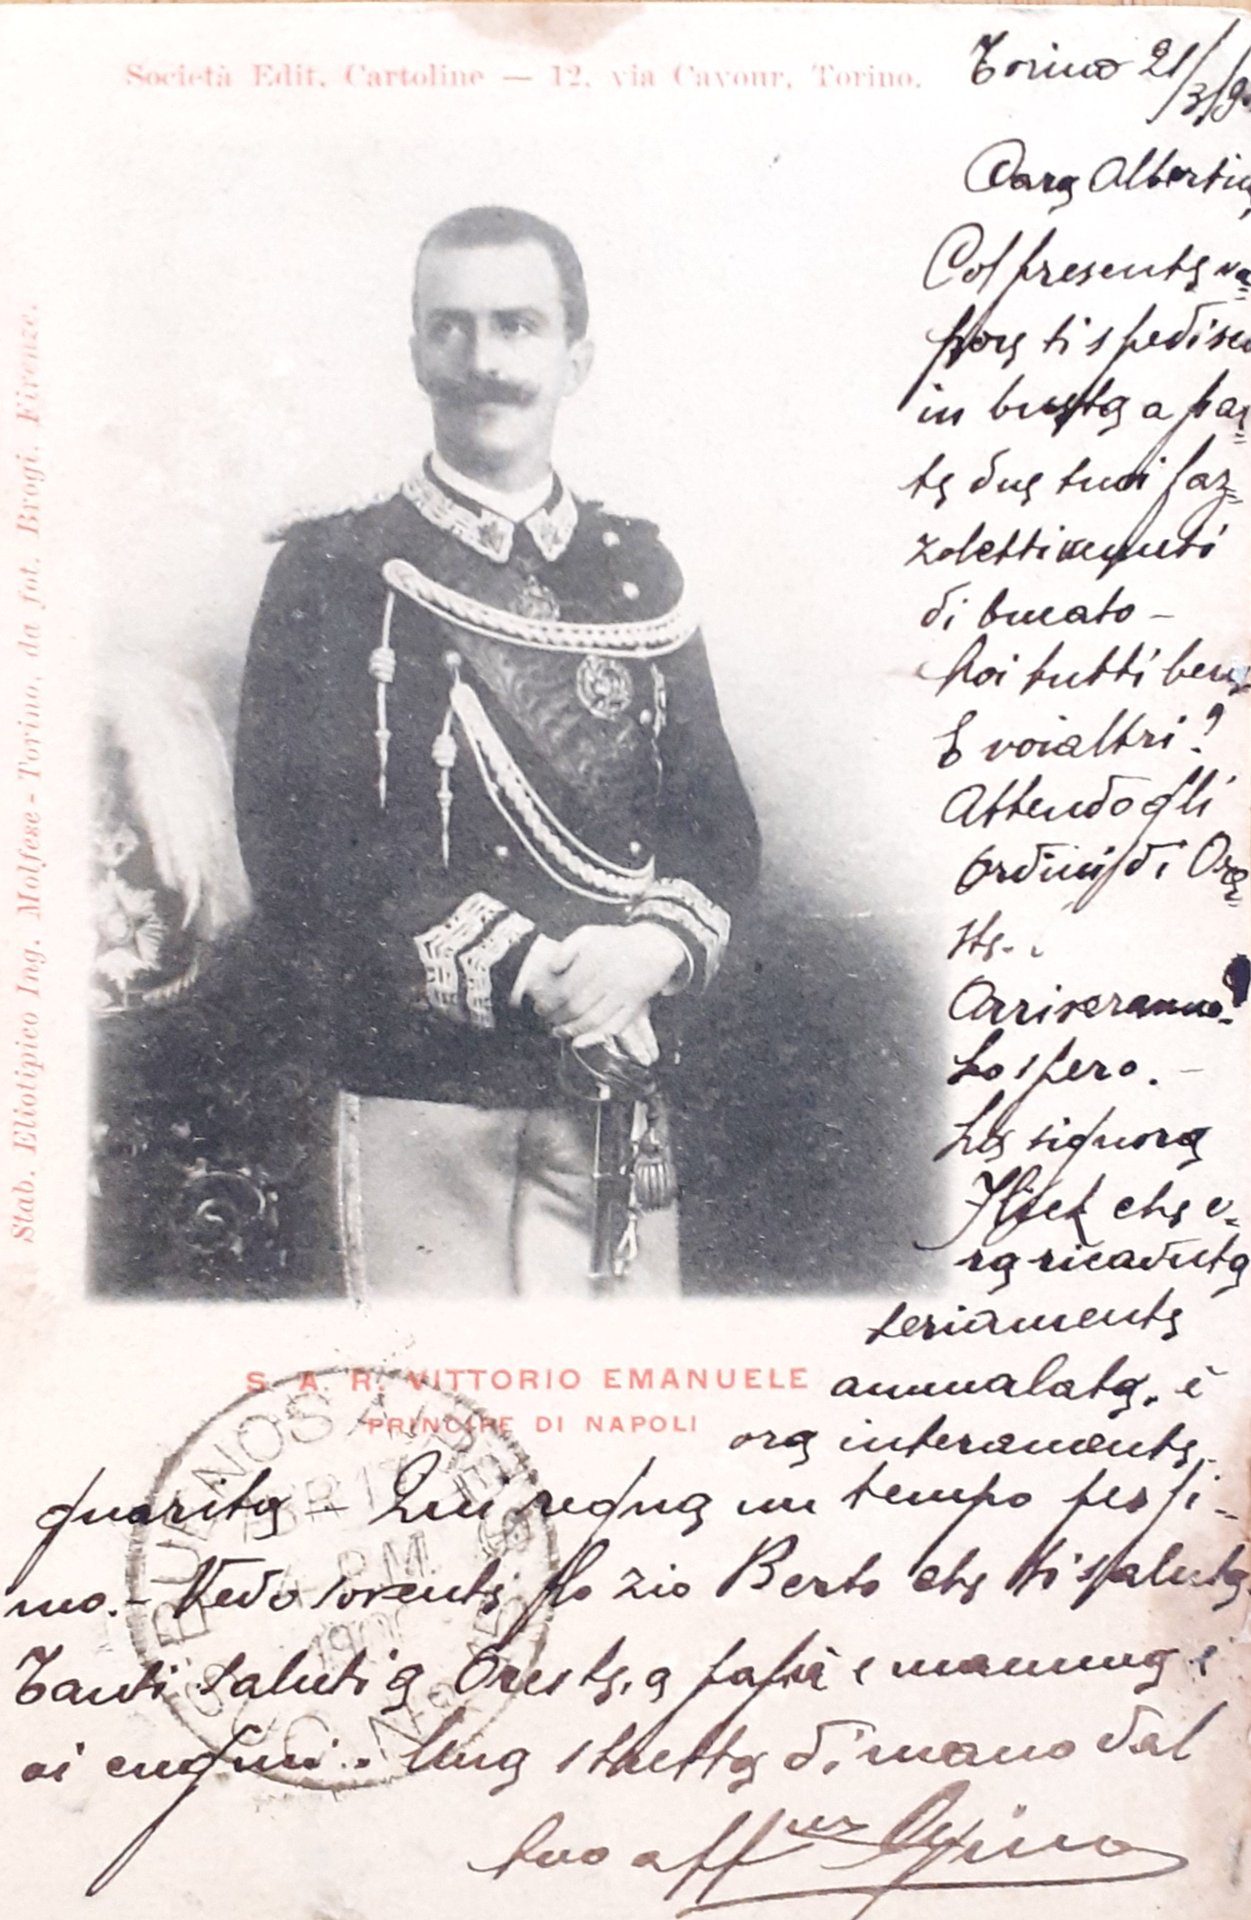 Società Edit. Cartoline — 12, via Cavour, Torino.
Stab. Eliotipico Ing. Molfese - Torino, da fot. Brogi, Firenze.
Torino 21/3/9
Cara Albertin
Col presente va=
pore ti spedisco
in busta a par=
te due tuoi faz=
zoletti
di bucato -
Noi tutti bene
E voialtri?
Attendo gli
ordini di Ore=
ste.
Arriveranno?
Lo spero. -
La signora
che e=
ra ricaduta
seriamente
ammalata, è
ora interamente
guarita - Qui regna un tempo pessi=
mo. - Vedo sovente lo zio Berto che ti saluta
Tanti saluti a Oreste, a papà e mamma e
ai cugini. Una stretta di mano dal
tuo aff.
S. A. R. VITTORIO EMANUELE
PRINCIPE DI NAPOLI
BUENOS AIRES
ABR 17
4 P.M.